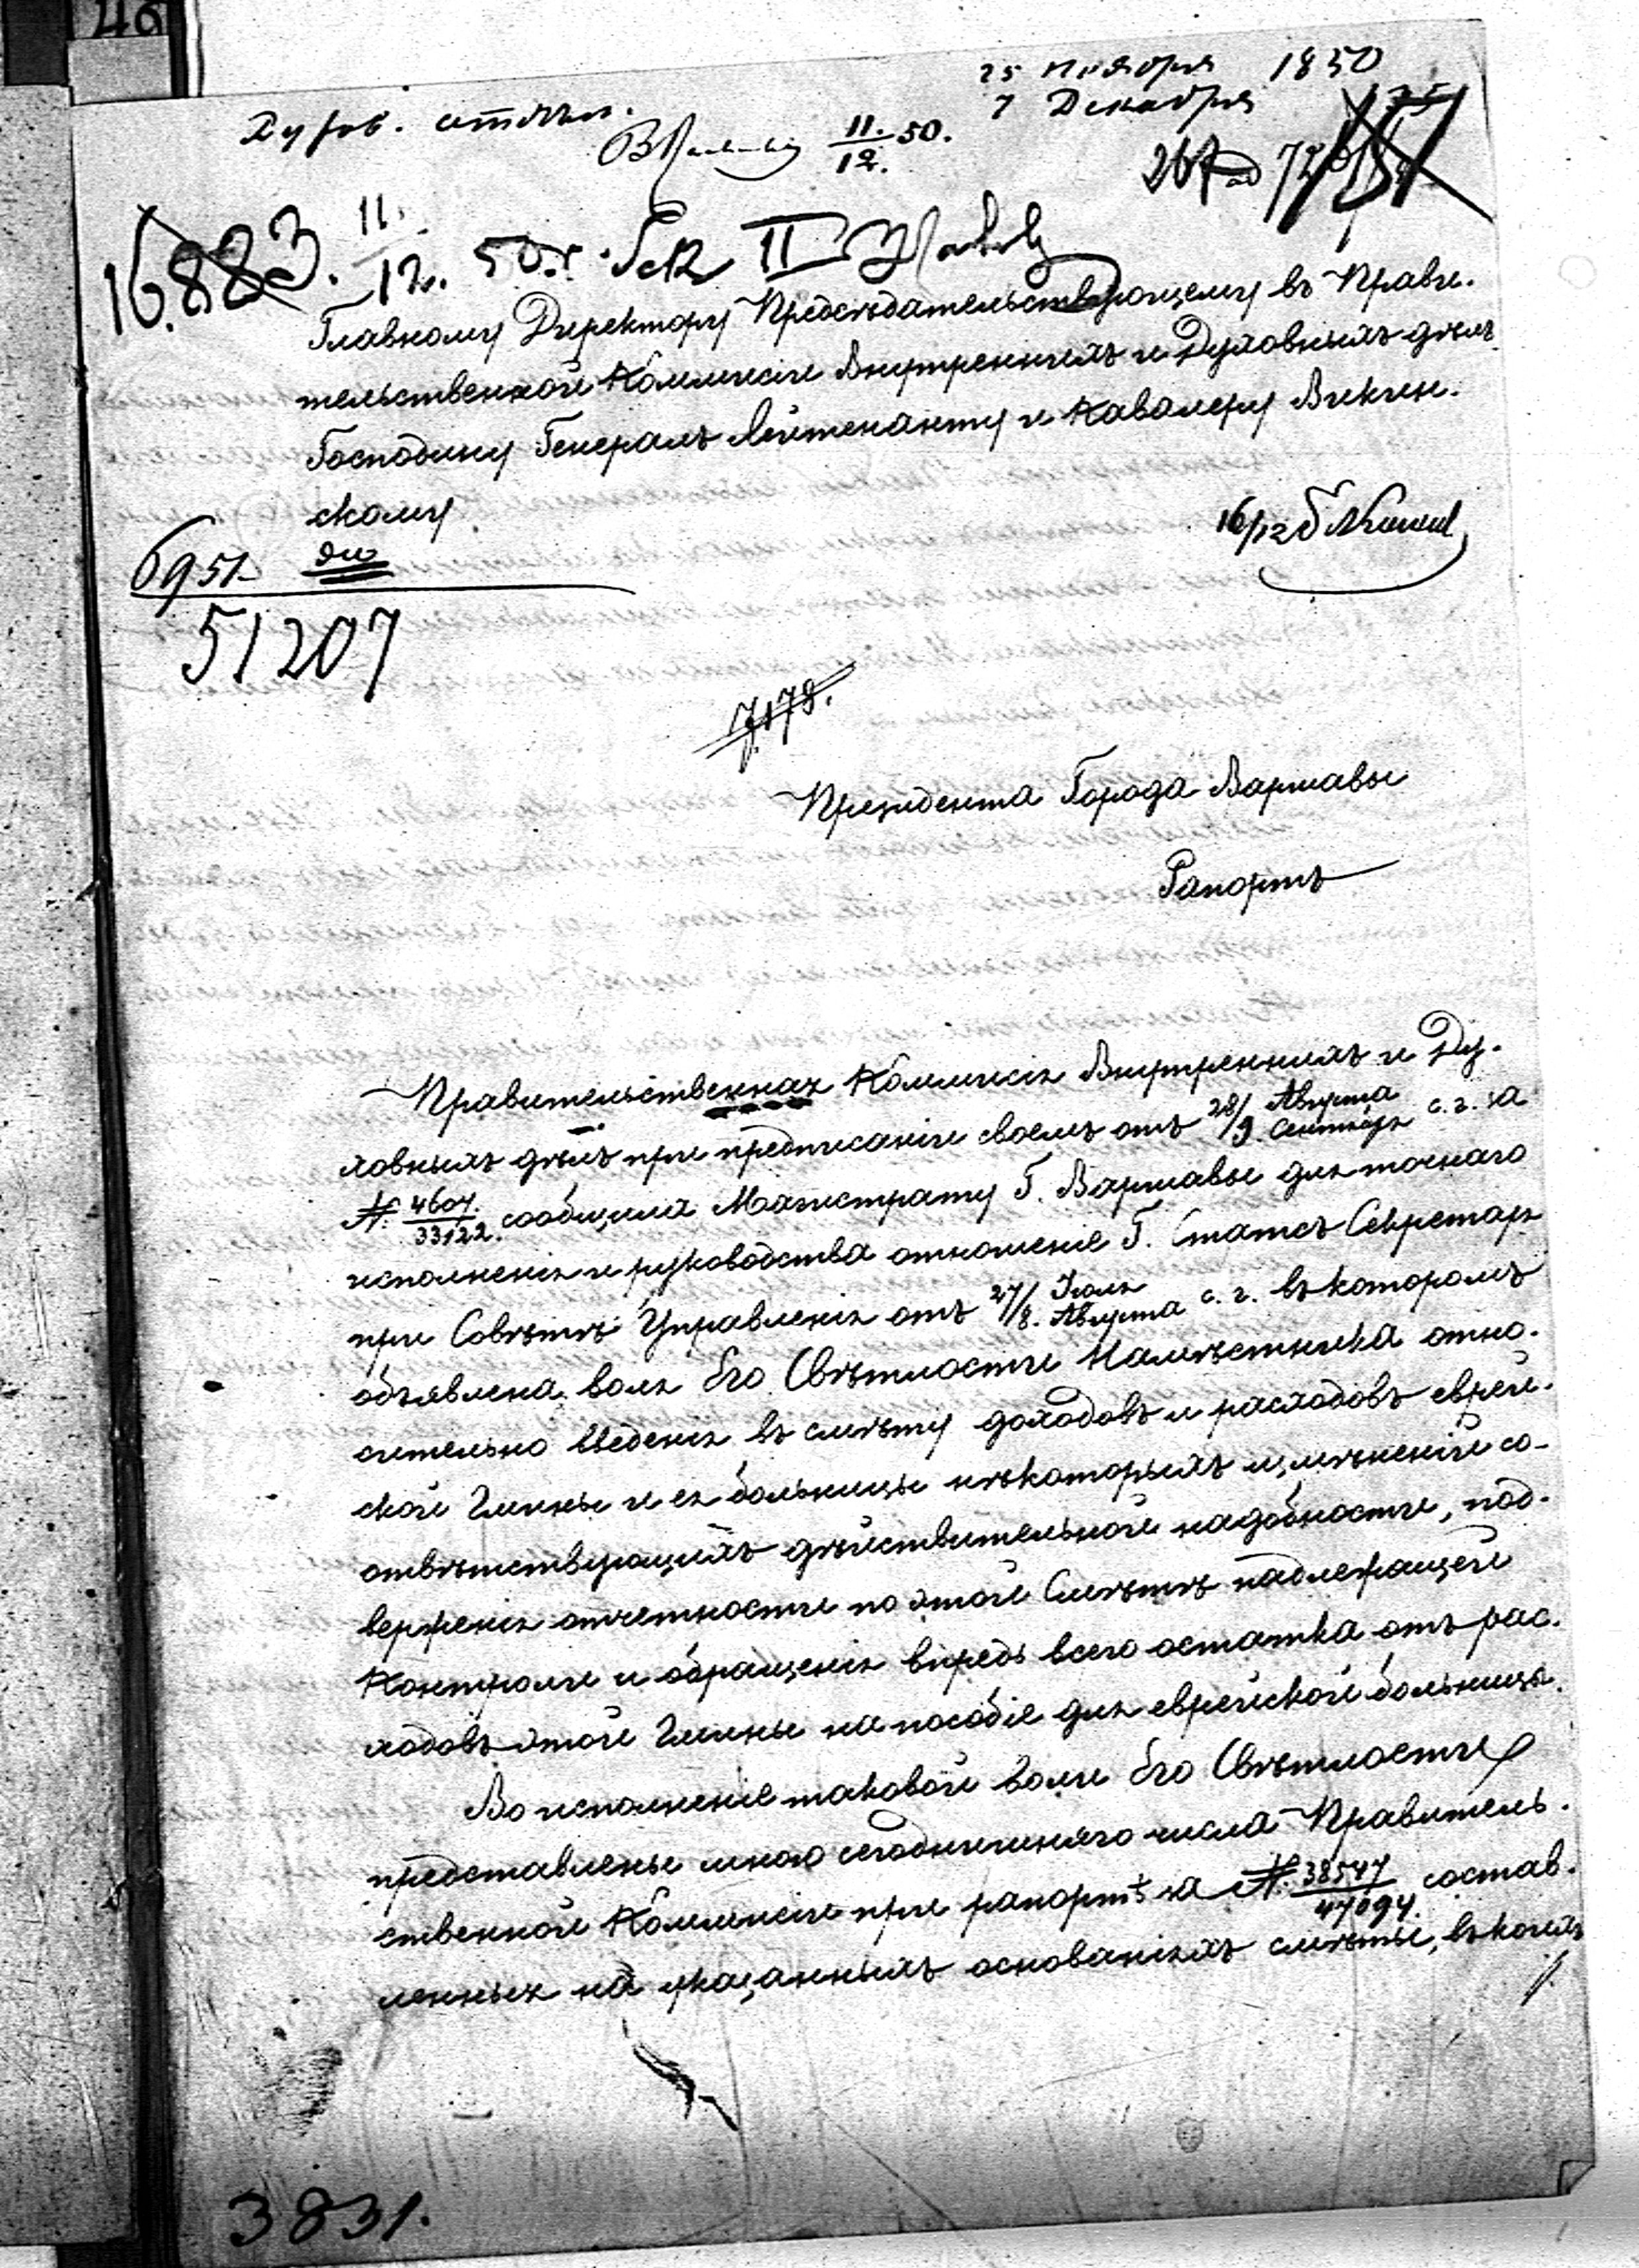 46
25 Ноября 1850
7 Декабря
Духов. отдѣл.
11./12. 50.
267
16.883.
11./12. 50. r. II
Главному Директору Предсѣдательствующему въ Прави-
тельственной Коммисіи Внутреннихъ и Духовныхъ дѣлъ
Господину Генералъ Лейтенанту и Кавалеру Викин-
скому
6951
51207
16/12
7178.
Президента Города Варшавы
Рапортъ
Правительственная Коммисія Внутреннихъ и Ду-
ховныхъ дѣлъ при предписаніи своемъ отъ 28/9 Августа/Сентября с. г. за
№ 4607/33122. сообщила Магистрату Г. Варшавы для точнаго
исполненія и руководства отношеніе Г. Статсъ Секретаря
при Совѣтѣ Управленія отъ 27/8. Іюля/Августа с. г. въ которомъ
объявлена воля Его Свѣтлости Намѣстника отно-
сительно введенія въ смѣту доходовъ и расходовъ еврей-
ской Гмины и ея больницы нѣкоторыхъ измѣненій со-
отвѣтствующихъ дѣйствительной надобности, под-
верженія отчетности по этой Смѣтѣ надлежащей
Контроли и обращенія впредь всего остатка отъ рас-
ходовъ этой Гмины на пособіе для еврейской больницы.
Во исполненіе таковой воли Его Свѣтлости
представлены мною сегоднишняго числа Правитель-
ственной Коммисіи при рапортѣ за № 38547/47094. состав-
ленныя на указанныхъ основаніяхъ смѣты, въ коихъ
3831.